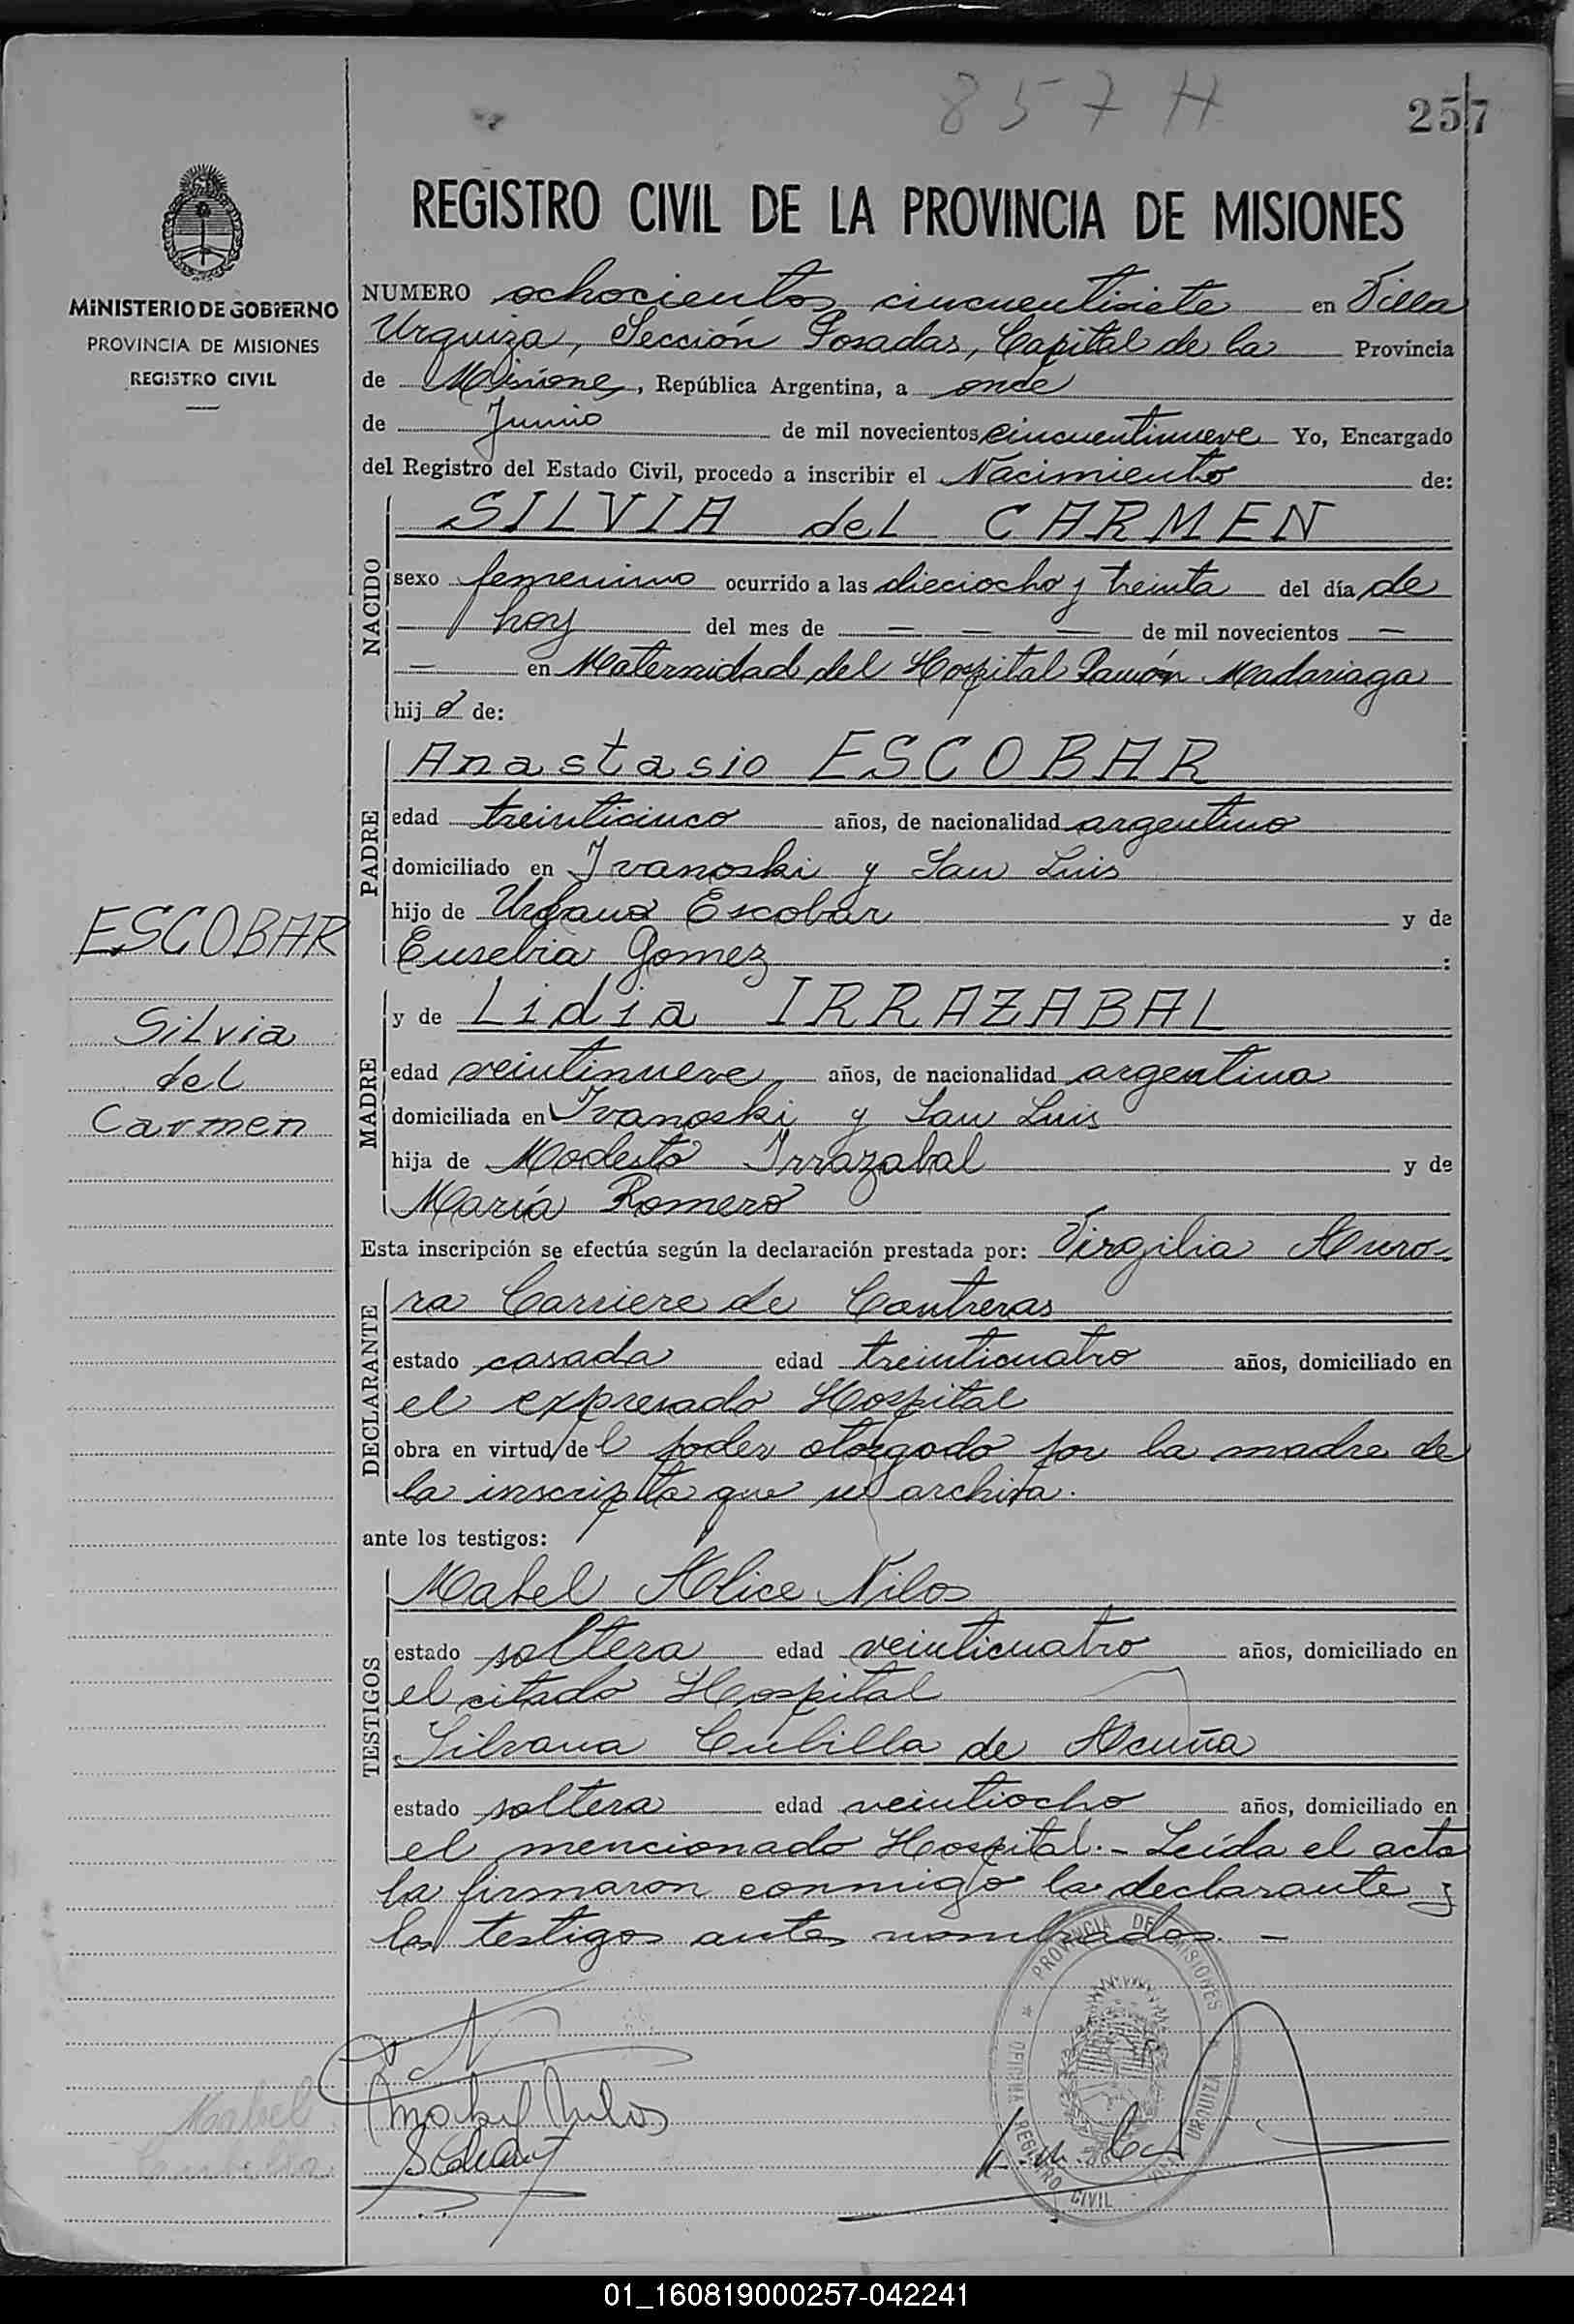 857 H
257
REGISTRO CIVIL DE LA PROVINCIA DE MISIONES
MINISTERIO DE GOBIERNO
PROVINCIA DE MISIONES
REGISTRO CIVIL
NUMERO ochocientos cincuentisiete en Villa
Urquiza, Sección Posadas, Capital de la Provincia
de Misiones, República Argentina, a once
de Junio de mil novecientos cincuentinueve Yo, Encargado
del Registro del Estado Civil, procedo a inscribir el Nacimiento de:
NACIDO
SILVIA del CARMEN
sexo femenino ocurrido a las dieciocho y treinta del día de
hoy del mes de — — — de mil novecientos —
— en Maternidad del Hospital Ramón Madariaga
hija de:
PADRE
Anastasio ESCOBAR
edad treinticinco años, de nacionalidad argentino
domiciliado en Ivanoski y San Luis
hijo de Urbano Escobar y de
Eusebia Gomez :
ESCOBAR
Silvia
del
Carmen
MADRE
y de Lidia IRRAZABAL
edad veintinueve años, de nacionalidad argentina
domiciliada en Ivanoski y San Luis
hija de Modesto Irrazabal y de
María Romero
Esta inscripción se efectúa según la declaración prestada por: Virgilia Auro-
DECLARANTE
ra Carriere de Contreras
estado casada edad treinticuatro años, domiciliado en
el expresado Hospital
obra en virtud del poder otorgado por la madre de
la inscripta que se archiva.
ante los testigos:
TESTIGOS
Mabel Alice Nilos
estado soltera edad veinticuatro años, domiciliado en
el citado Hospital
Silvana Cubilla de Acuña
estado soltera edad veintiocho años, domiciliado en
el mencionado Hospital.- Leída el acta
la firmaron conmigo la declarante y
los testigos antes nombrados. —
PROVINCIA DE MISIONES
OFICINA REGISTRO CIVIL
VILLA URQUIZA
Mabel Nilos
Mabel
Cubilla
01_160819000257-042241